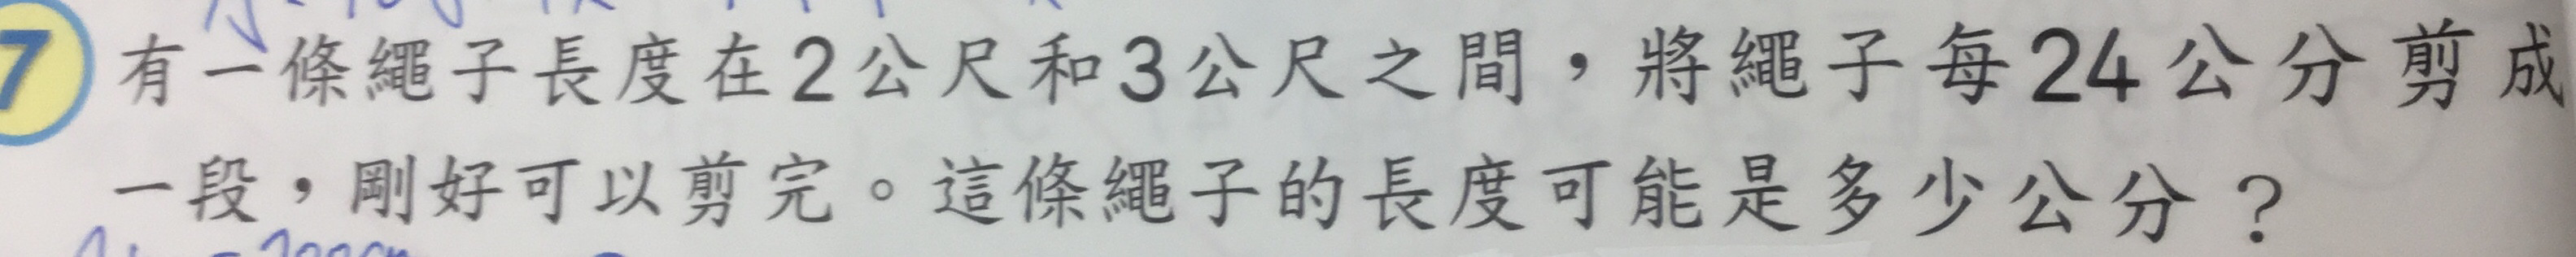 7 有一條繩子長度在2公尺和3公尺之間，將繩子每24公分剪成
一段，剛好可以剪完。這條繩子的長度可能是多少公分？